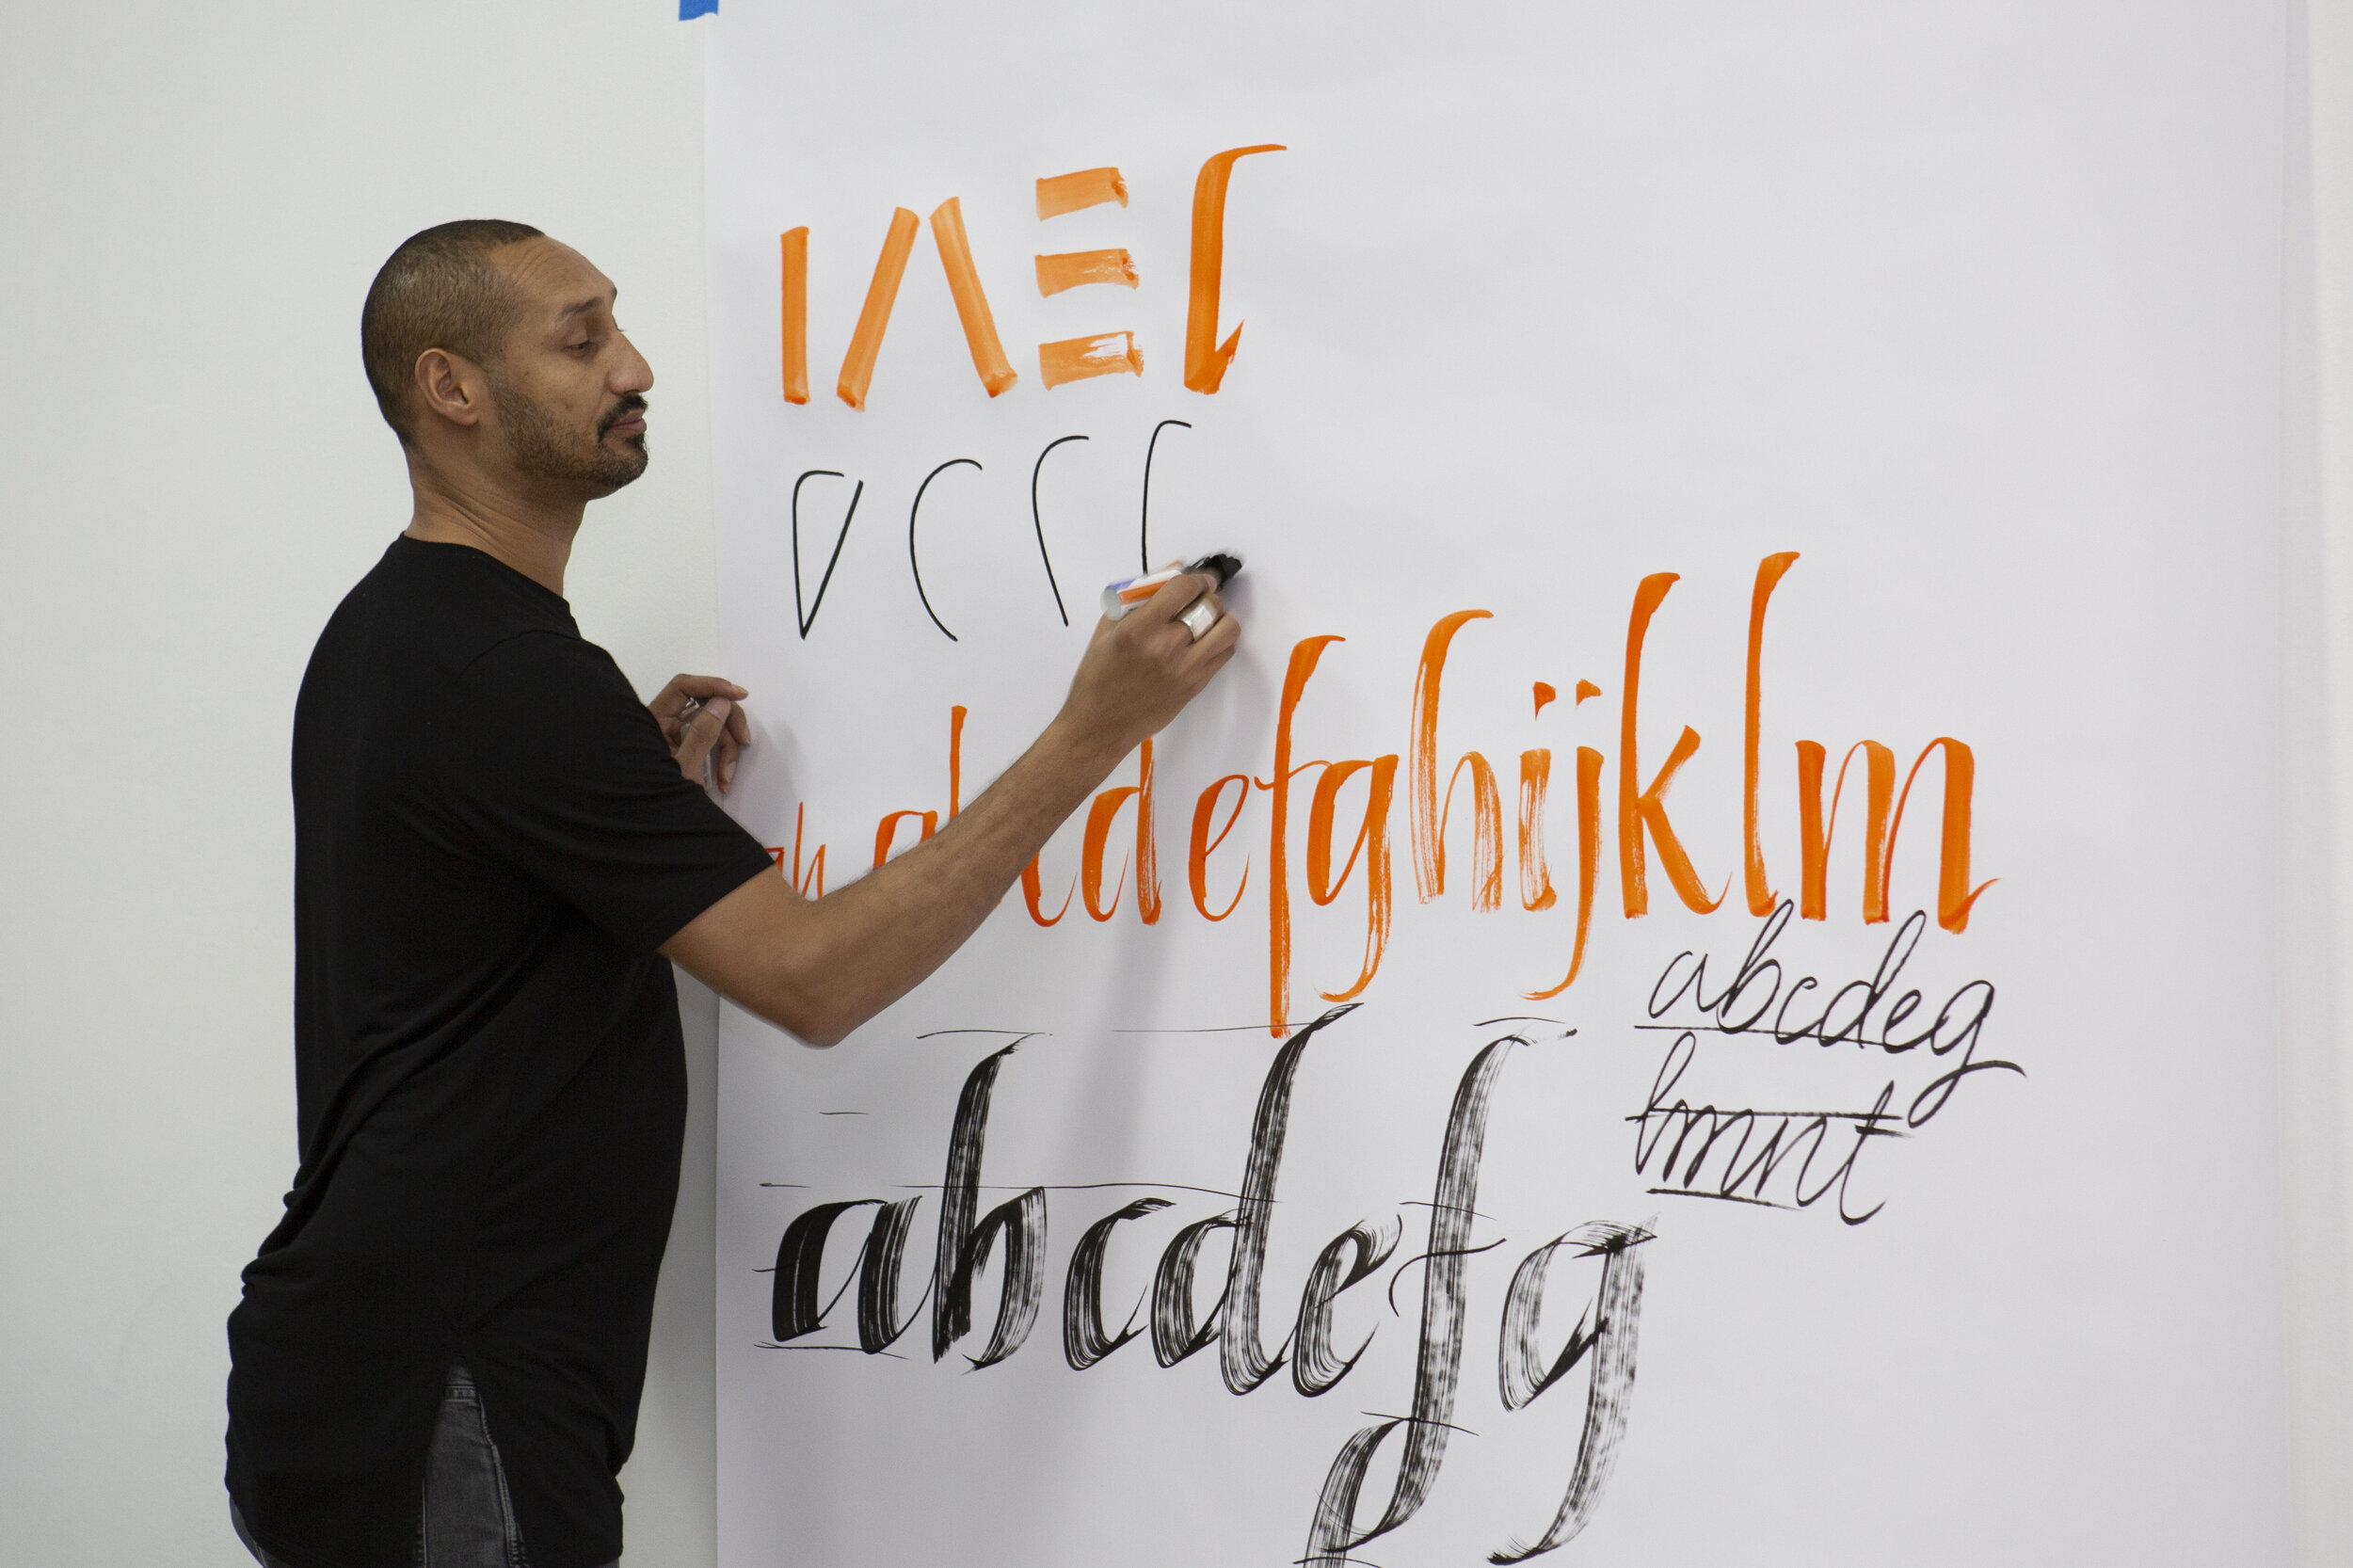 abcdefghijklm
abcdeg
lmnt
abcdefg